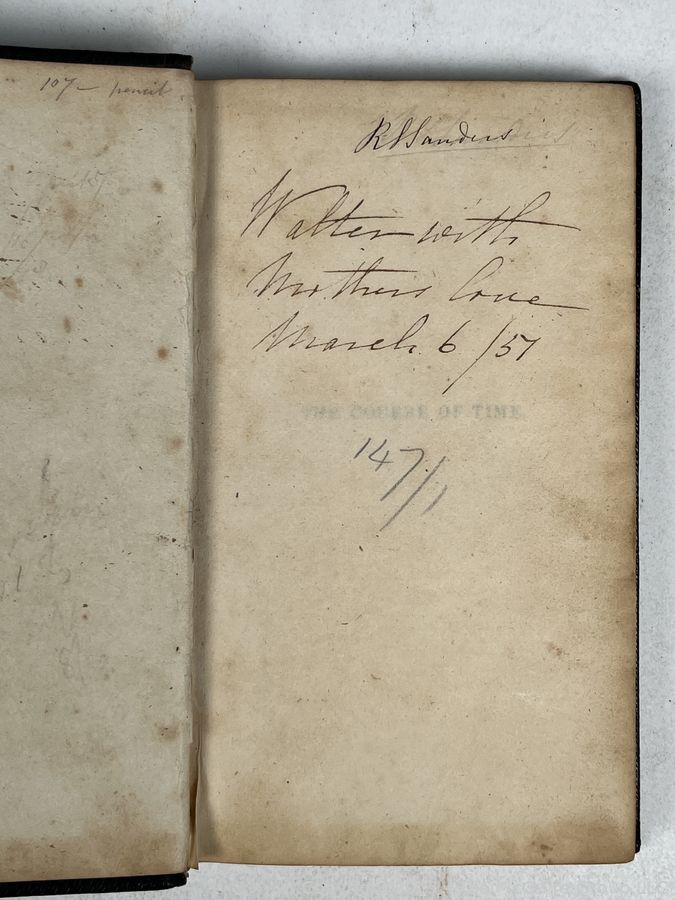 107- pencil
R S Sanders
Walter with
Mothers love
March 6 /51
THE COURSE OF TIME
147/1